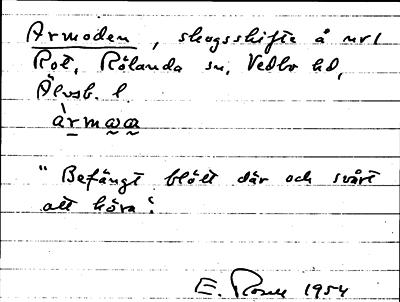 Armoden, skogsskifte å nr 1
Rot, Rölanda sn, Vedbo hd,
Älvsb. l.
àrmωa
"Befängt blött där och svårt
att köra".
E. Rosell 1954